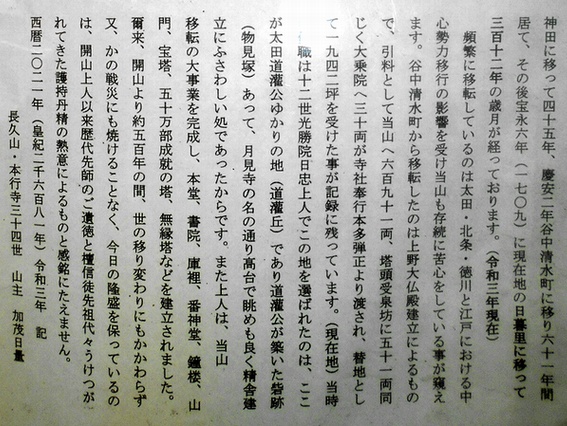 神田に移って四十五年、慶安二年谷中清水町に移り六十一年間
居て、その後宝永六年（一七〇九）に現在地の日暮里に移って
三百十二年の歳月が経っております。（令和三年現在）
頻繁に移転しているのは太田・北条・徳川と江戸における中
心勢力移行の影響を受け当山も存続に苦心をしている事が窺え
ます。谷中清水町から移転したのは上野大仏殿建立によるもの
で、引料として当山へ六百九十一両、塔頭受泉坊に五十一両同
じく大乗院へ三十両が寺社奉行本多弾正より渡され、替地とし
て一九四二坪を受けた事が記録に残っています。（現在地）当時
職は十二世光勝院日忠上人でこの地を選ばれたのは、ここ
が太田道灌公ゆかりの地（道灌丘）であり道灌公が築いた砦跡
（物見塚）あって、月見寺の名の通り高台で眺めも良く精舎建
立にふさわしい処であったからです。また上人は、当山
移転の大事業を完成し、本堂、書院、庫裡、番神堂、鐘楼、山
門、宝塔、五十万部成就の塔、無縁塔などを建立されました。
爾来、開山より約五百年の間、世の移り変わりにもかかわらず
又、かの戦災にも焼けることなく、今日の隆盛を保っているの
は、開山上人以来歴代先師のご遺徳と檀信徒先祖代々うけつが
れてきた護持丹精の熱意によるものと感銘にたえません。
西暦二〇二一年（皇紀二千六百八一年）令和三年　記
長久山・本行寺三十四世　山主　加茂日量